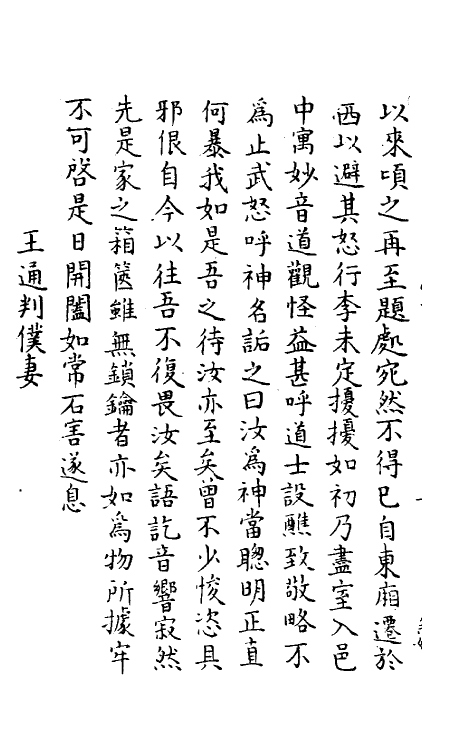 以來頃之再至題處宛然不得已自東廂遷於
西以避其怒行李未定擾擾如初乃盡室入邑
中寓妙音道觀怪益甚呼道士設醮致敬略不
為止武怒呼神名詬之曰汝為神當聰明正直
何暴我如是吾之待汝亦至矣曾不少悛恣具
邪佷自今以往吾不復畏汝矣語訖音響寂然
先是家之箱篋雖無鎖鑰者亦如為物所據牢
不可啓是日開闔如常石害遂息
王通判僕妻